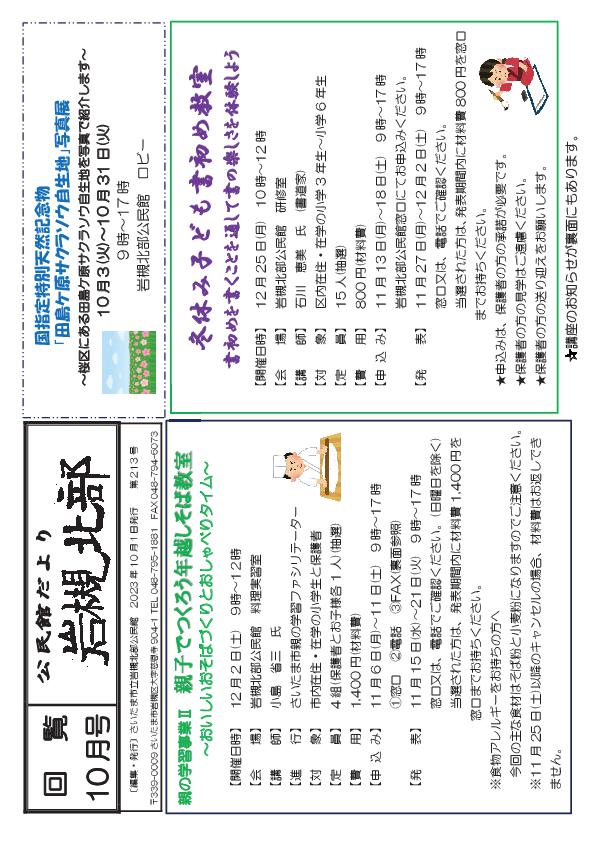 回 覧
10月号
公民館だより
岩槻北部
〔編集・発行〕さいたま市立岩槻北部公民館 2023年10月1日発行 第213号
〒339-0009 さいたま市岩槻区大字慈恩寺904-1 TEL 048-795-1881 FAX 048-794-6073
国指定特別天然記念物
「田島ケ原サクラソウ自生地」写真展
～桜区にある田島ケ原サクラソウ自生地を写真で紹介します～
10月3(火)～10月31日(火)
9時～17時
岩槻北部公民館 ロビー
親の学習事業Ⅱ 親子でつくろう年越しそば教室
～おいしいおそばづくりとおしゃべりタイム～
【開催日時】 12月2日(土) 9時～12時
【会 場】 岩槻北部公民館 料理実習室
【講 師】 小島 省三 氏
【進 行】 さいたま市親の学習ファシリテーター
【対 象】 市内在住・在学の小学生と保護者
【定 員】 4組(保護者とお子様各1人)(抽選)
【費 用】 1,400円(材料費)
【申 込 み】 11月6日(月)～11日(土) 9時～17時
①窓口 ②電話 ③FAX(裏面参照)
【発 表】 11月15日(水)～21日(火) 9時～17時
窓口又は、電話でご確認ください。(日曜日を除く)
当選された方は、発表期間内に材料費1,400円を
窓口までお持ちください。
※食物アレルギーをお持ちの方へ
今回の主な食材はそば粉と小麦粉になりますのでご注意ください。
※11月25日(土)以降のキャンセルの場合、材料費はお返しでき
ません。
冬休み子ども書初め教室
書初めを書くことを通して書の楽しさを体験しよう
【開催日時】 12月25日(月) 10時～12時
【会 場】 岩槻北部公民館 研修室
【講 師】 石川 恵美 氏 (書道家)
【対 象】 区内在住・在学の小学3年生～小学6年生
【定 員】 15人(抽選)
【費 用】 800円(材料費)
【申 込 み】 11月13日(月)～18日(土) 9時～17時
岩槻北部公民館窓口にてお申込みください。
【発 表】 11月27日(月)～12月2日(土) 9時～17時
窓口又は、電話でご確認ください。
当選された方は、発表期間内に材料費800円を窓口
までお持ちください。
★申込みは、保護者の方の承諾が必要です。
★保護者の方の見学はご遠慮ください。
★保護者の方の送り迎えをお願いします。
★講座のお知らせが裏面にもあります。